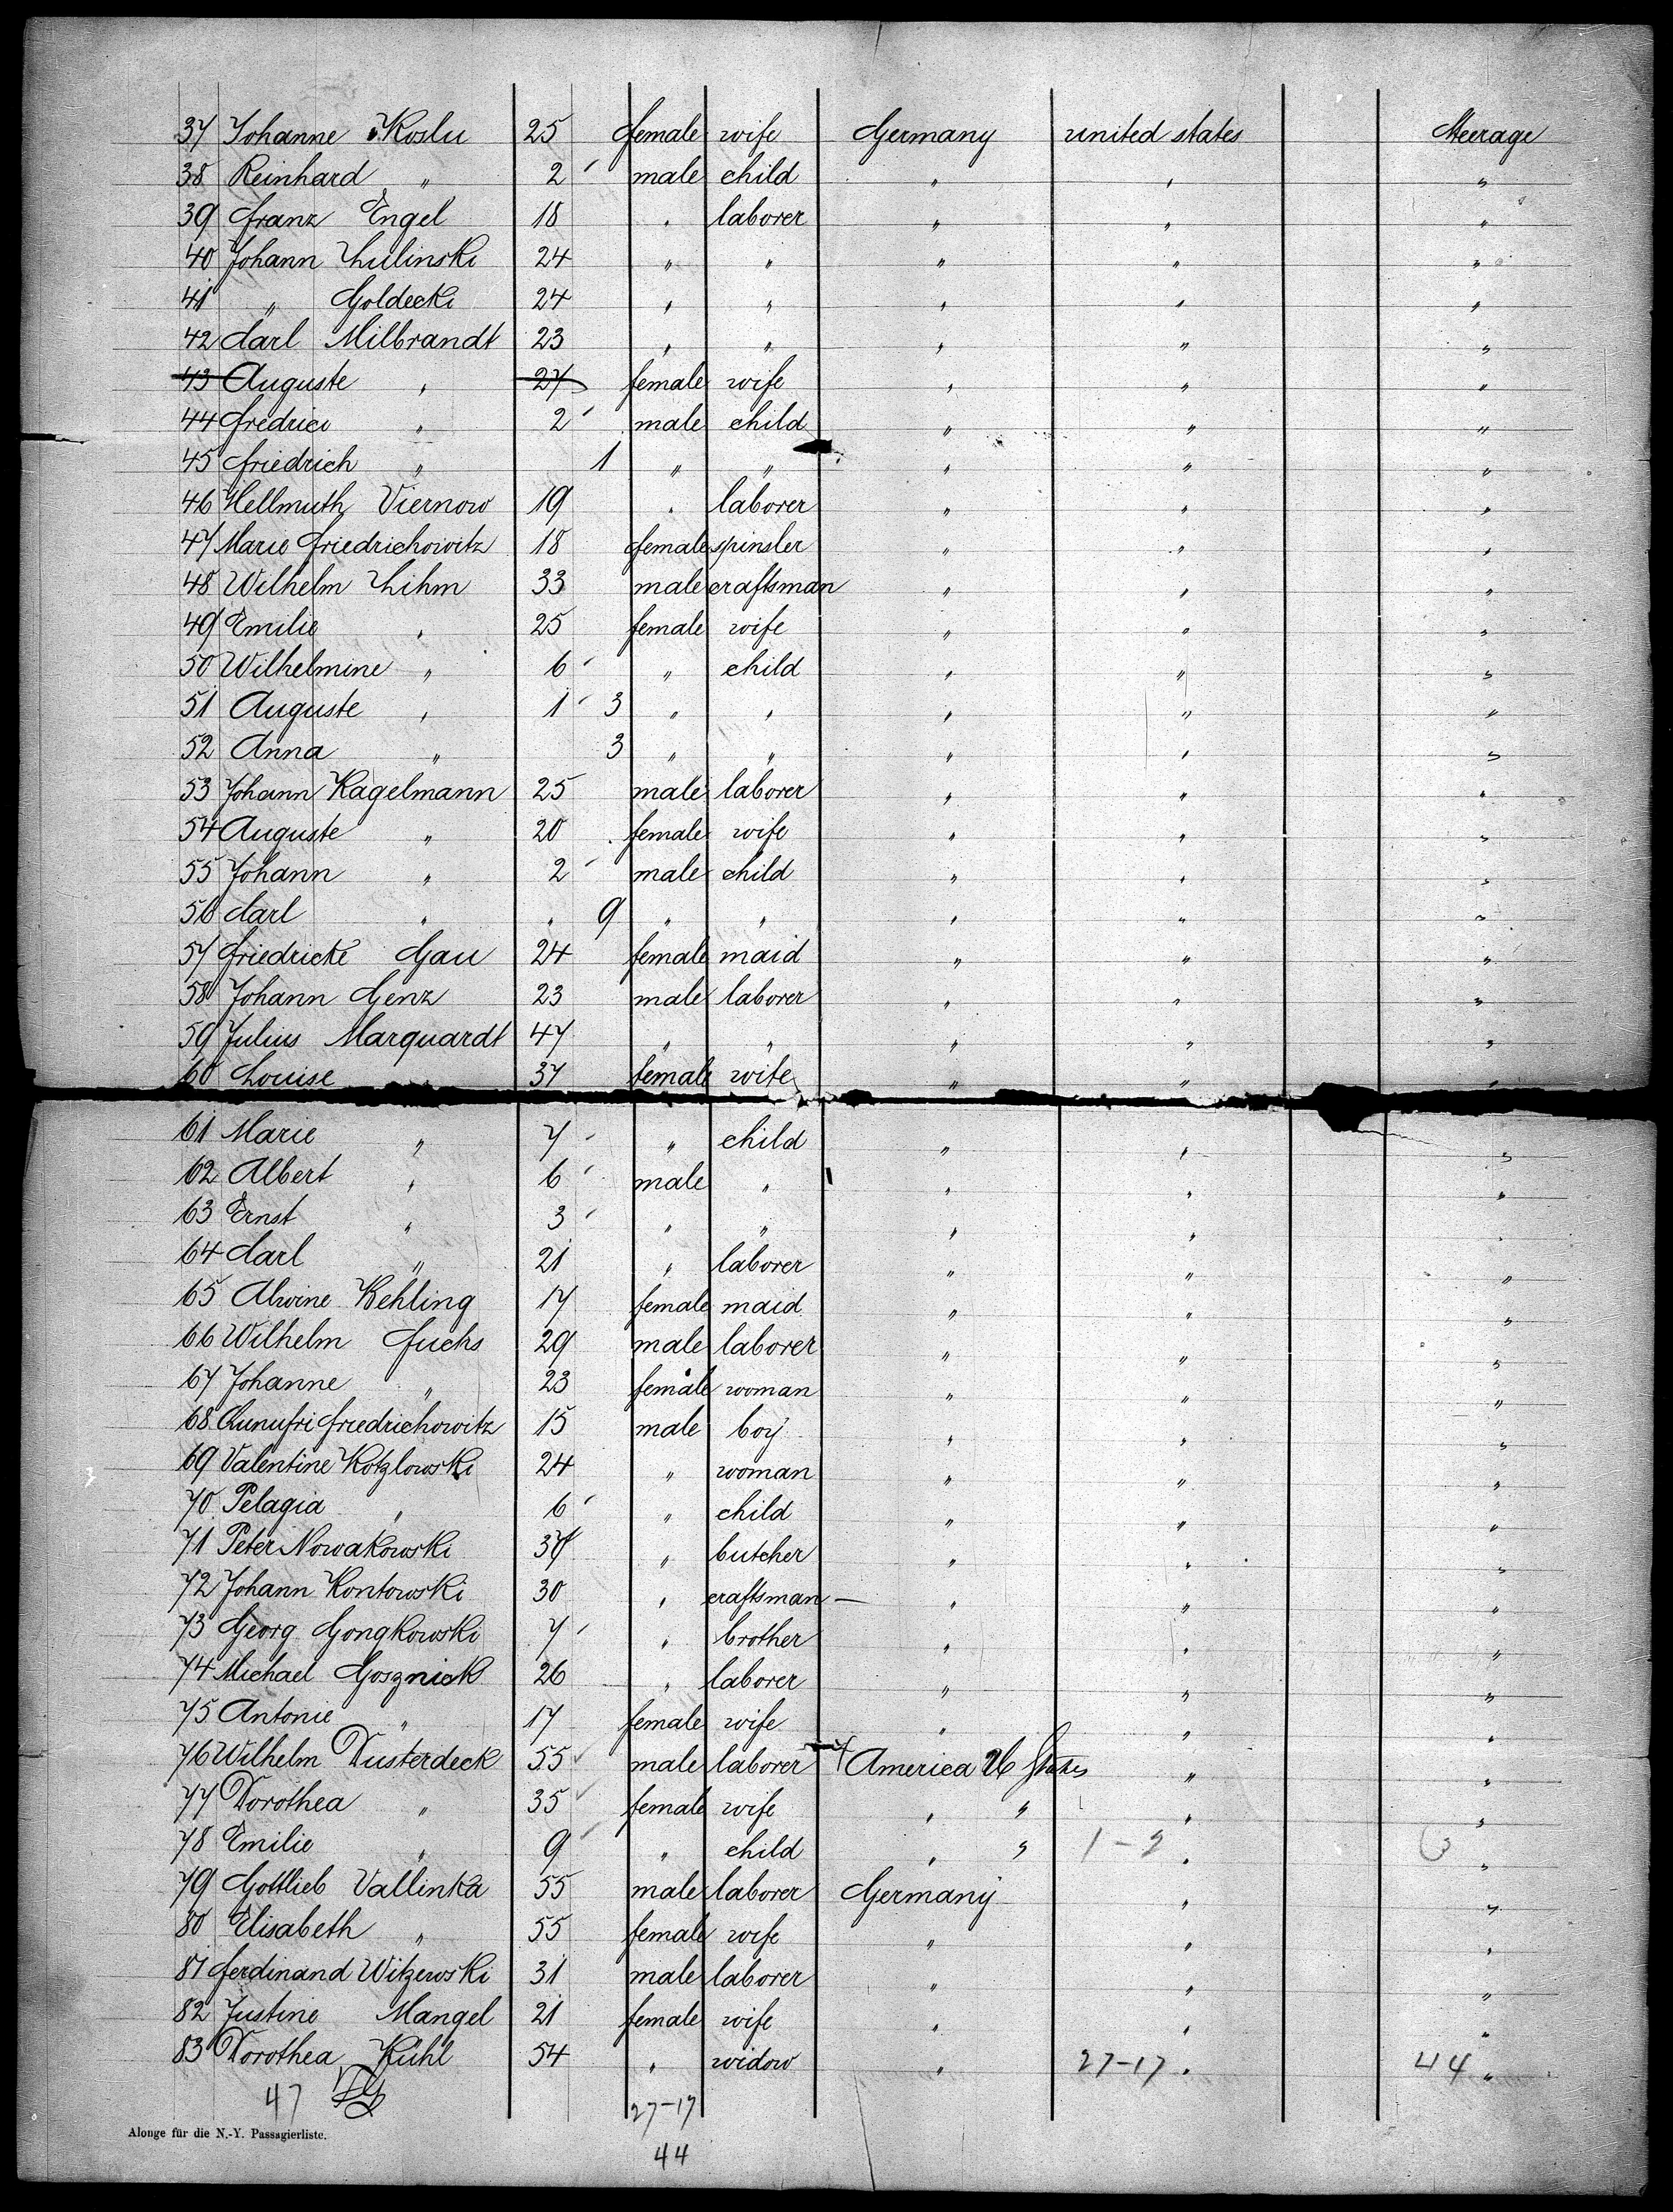 37 Johanne Koslu 25 female wife Germany united states Steerage
38 Reinhard " 2 male child " " "
39 Franz Engel 18 " laborer " " "
40 Johann Lulinski 24 " " " " "
41 " Goldecki 24 " " " " "
42 Carl Milbrandt 23 " " " " "
43 Auguste " 27 female wife " " "
44 Fredrici " 2 male child " " "
45 Friedrich " 1 " " " " "
46 Hellmuth Viernow 19 " laborer " " "
47 Marie Friedrichowitz 18 female spinsler " " "
48 Wilhelm Lihm 33 male craftsman " " "
49 Emilie " 25 female wife " " "
50 Wilhelmine " 6 " child " " "
51 Auguste " 1 3 " " " " "
52 Anna " 3 " " " " "
53 Johann Kagelmann 25 male laborer " " "
54 Auguste " 20 female wife " " "
55 Johann " 2 male child " " "
56 Carl " " 9 " " " " "
57 Friedricke Gau 24 female maid " " "
58 Johann Genz 23 male laborer " " "
59 Julius Marquardt 47 " " " " "
60 Louise 37 female wife " " "
61 Marie " 7 " child " " "
62 Albert " 6 male " " " "
63 Ernst " 3 " " " " "
64 Carl " 21 " laborer " " "
65 Alwine Kehling 17 female maid " " "
66 Wilhelm Fuchs 29 male laborer " " "
67 Johanne " 23 female woman " " "
68 Friedrichowitz 15 male boy " " "
69 Valentine Kotzlowski 24 " woman " " "
70 Pelagia " 6 " child " " "
71 Peter Nowakowski 37 " butcher " " "
72 Johann Kontowski 30 " craftsman " " "
73 Georg Gongkowski 7 " brother " " "
74 Michael Gosznick 26 " laborer " " "
75 Antonie " 17 female wife " " "
76 Wilhelm Dusterdeck 55 male laborer America U States " "
77 Dorothea " 35 female wife " " " "
78 Emilie " 9 " child " " 1-2 " 3 "
79 Gottlieb Vallinka 55 male laborer Germany " "
80 Elisabeth " 55 female wife " " "
81 Ferdinand Witzewski 31 male laborer " " "
82 Justine Mangel 21 female wife " " "
83 Dorothea Kühl 54 " widow " 27-17 " 44 "
47 27-17
Alonge für die N.-Y. Passagierliste.
44